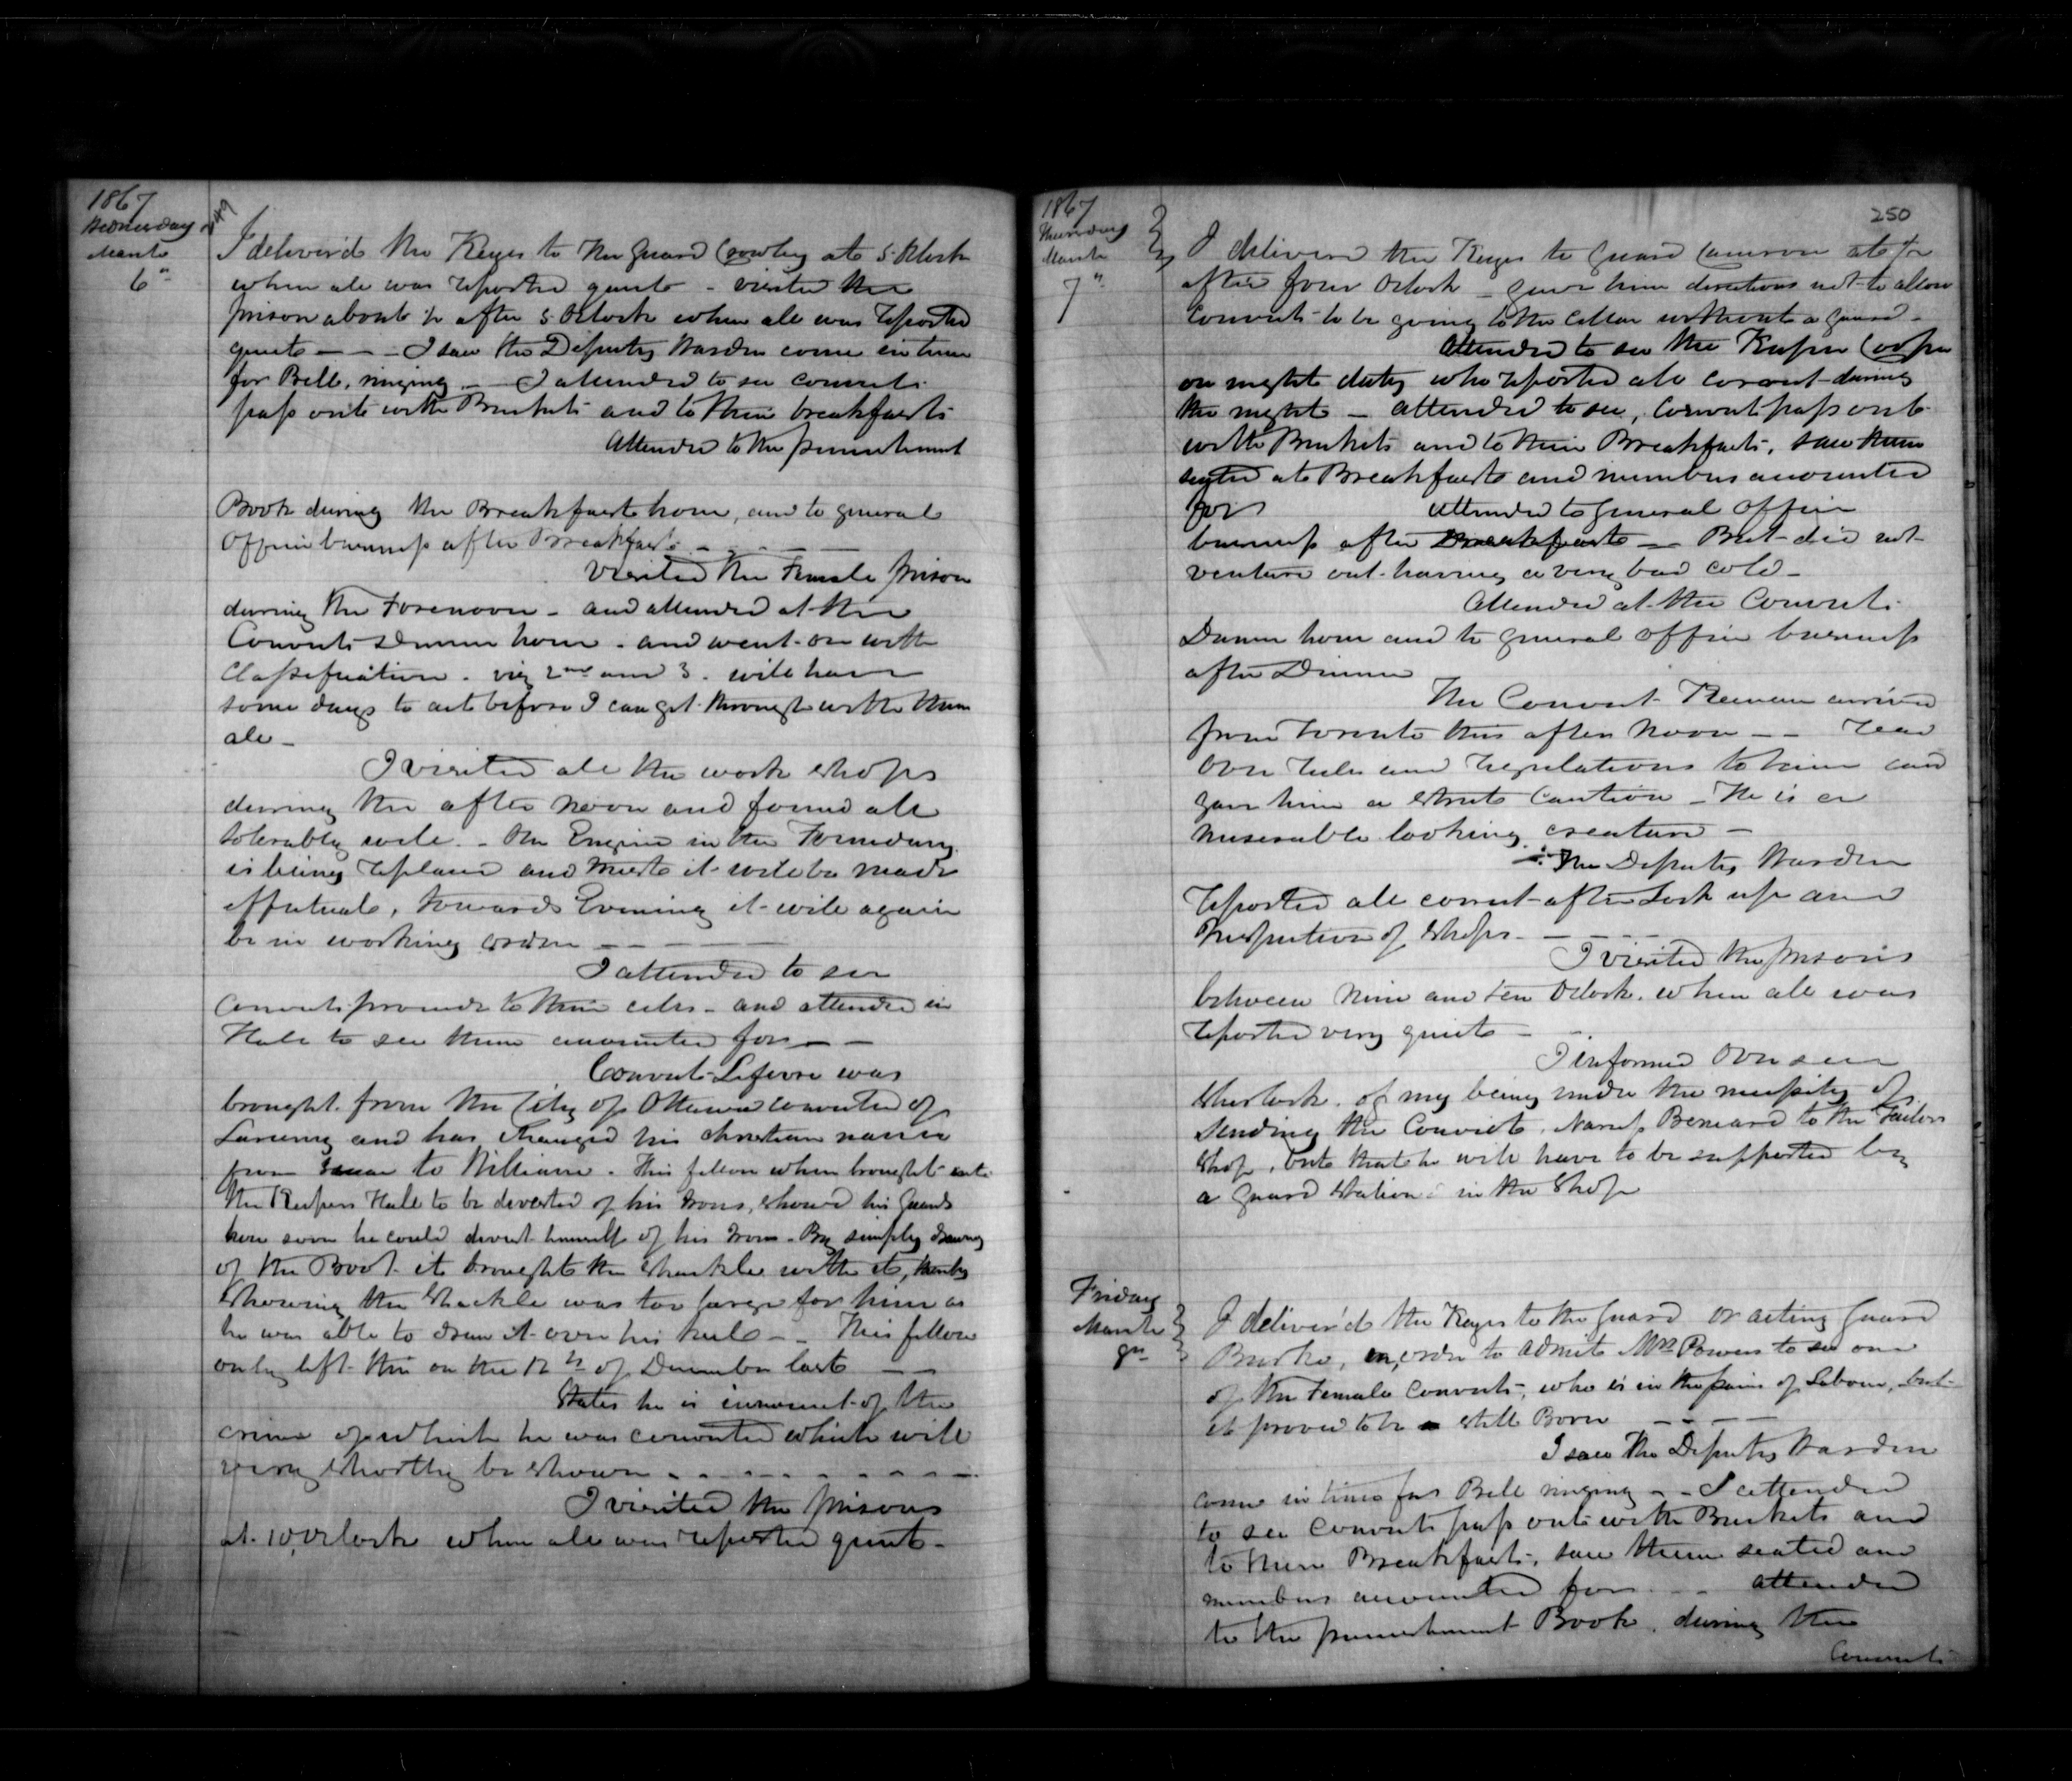 1867
Wednesday
March
6th
249
I deliver'd the Keys to the guard Cowley at 5. Oclock
when all was reported quiet - visited the
prison about ½ after 5 Oclock when all was reported
quiet - - - I saw the Deputy Warden come in time
for Bell, ringing - I attended to see convicts
pass out with Buckets and to their breakfasts
attended to the punishment
Book during the Breakfast hour, and to general
Office business after Breakfast - - - -
Visited the Female prison
during the Forenoon - and attended at the
Convicts dinner hour - and went on with
Classification - viz 2nd and 3. will have
some days to act before I can get through with them
all -
I visited all the work shops
during the after noon and found all
tolerably well. - the Engine in the Foundary
is being replaced and trust it will be made
effectual, towards Evening it will again
be in working order - - - -
I attended to see
convicts proceed to their cells - and attended in
Hall to see them accounted for - -
Convict Lefevre was
brought from the City of Ottawa convicted of
Larceny and has changed his christian name
from to William. This fellow when brought into
the Keepers Hall to be divested of his Irons, showed his guards
how soon he could divest himself of his Irons - By simply drawing
of the Boot it brought the shackle with it, thereby
showing the shackle was too large for him as
he was able to draw it over his heel - - This fellow
only left this on the 12th of December last -
States he is innocent of the
crime of which he was convicted which will
very shortly be shown - - - - - - - -
I visited the prisons
at 10, Oclock when all was reported quiet -
1867
Thursday
March
7th
250
I delivered the Keys to guard Cameron at ½
after four Oclock - gave him directions not to allow
convicts to be going to the Cellar without a guard -
attended to see the Keeper Cooper
on night duty who reported all correct during
the night - attended to see, Convicts pass out
with Buckets and to their Breakfasts, saw them
seated at Breakfast and numbers accounted
for attended to general office
business after Breakfast - But did not
venture out having a very bad cold -
Attended at the Convicts
Dinner hour and to general office business
after Dinner
The Convict arrived
from Toronto this after noon - - read
over rules and regulations to him and
gave him a strict caution - He is a
miserable looking creature -
The Deputy Warden
reported all correct after Lock up and
Inspection of shops - - - -
I visited the prisons
between nine and ten Oclock. when all was
reported very quiet - -
I informed Overseer
Sherlock. of my being under the necessity of
sending the Convict. Narcis Bernard to the Tailors
shop, but that he will have to be supported by
a guard stationed in the shop
Friday
March
8th
I deliver'd the Keys to the guard or acting guard
Burke, in order to admit Mrs Powers to see one
of the Female Convicts, who is in the pains of Labour, but
it proved to be a still Born - - - -
I saw the Deputy Warden
come in time for Bell ringing - - I attended
to see convicts pass out with Buckets and
to their Breakfasts, saw them seated and
numbers accounted for - - attended
to the punishment Book, during the
Convicts